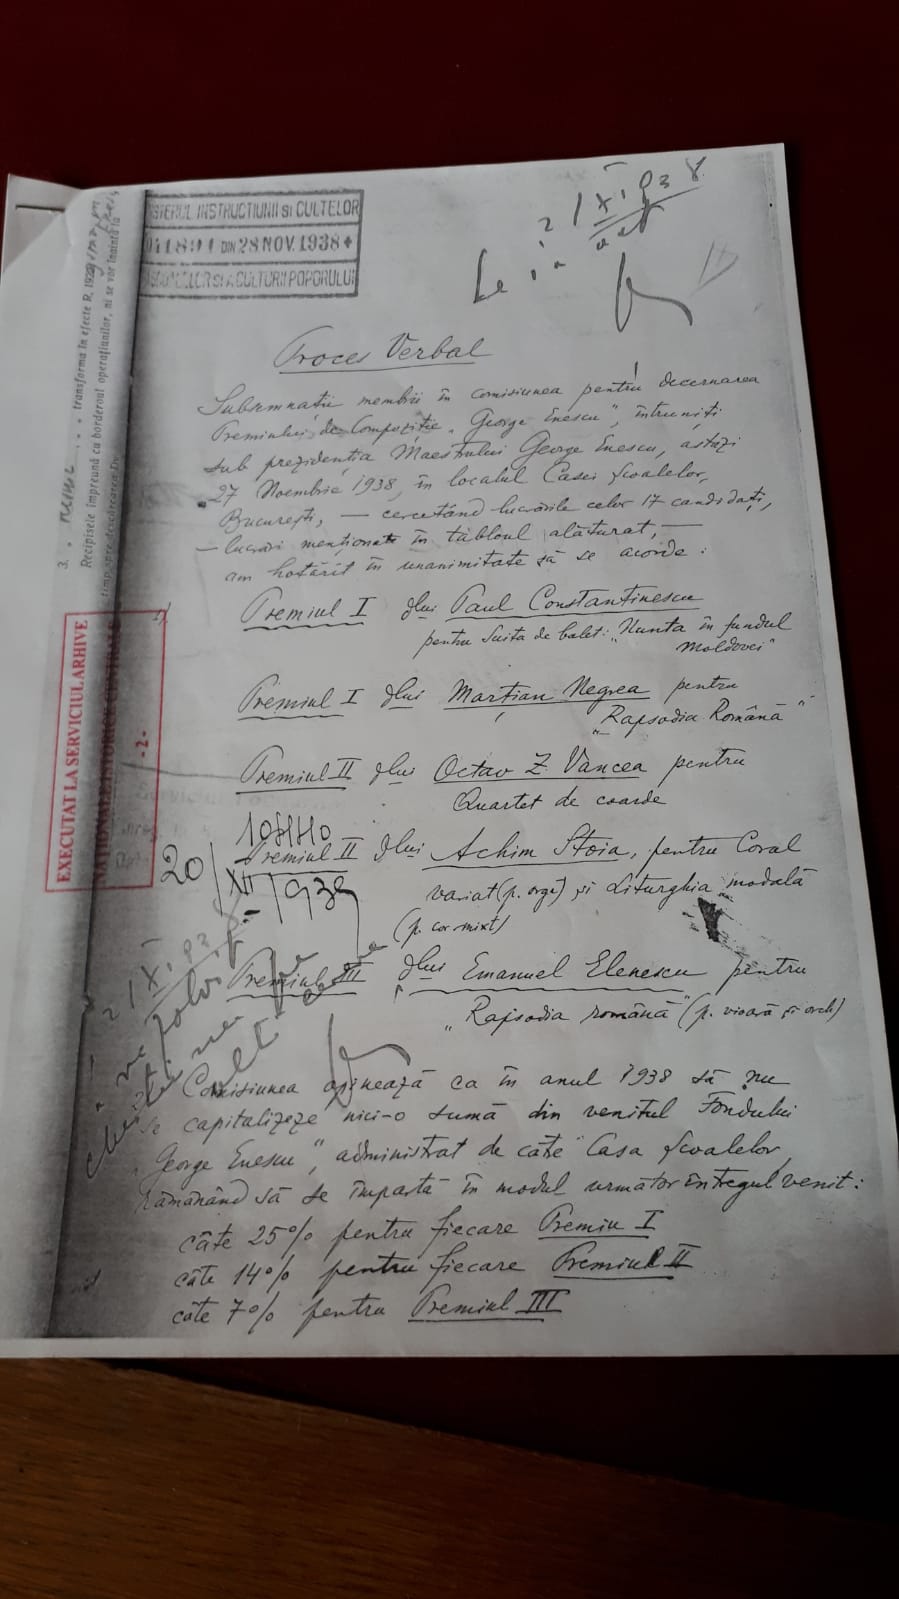 INSTRUCTIUNII SI CULTELOR
DIN 28 NOV. 1938
SI A CULTURII POPORULUI
Proces Verbal
Subsemnații membrii în comisiunea pentru decernarea
Premiului de Compoziție „George Enescu”, întruniți
sub prezidenția Maestrului George Enescu, astăzi
27 Noembrie 1938, în localul Casei Școalelor,
București, — cercetând lucrările celor 17 candidați,
— lucrări menționate în tabloul alăturat, —
am hotărît în unanimitate să se acorde:
Premiul I dlui Paul Constantinescu
pentru Suita de balet: „Nunta în fundul
Moldovei”
Premiul I dlui Marțian Negrea pentru
„Rapsodia Română”
Premiul II dlui Octav Z Vancea pentru
Quartet de coarde
Premiul II dlui Achim Stoia, pentru Coral
variat (p. orgă) și Liturghia modală
(p. cor mixt)
Premiul III dlui Emanuel Elenescu pentru
„Rapsodia română” (p. vioară și orch)
Comisiunea opinează ca în anul 1938 să nu
se capitalizeze nici-o sumă din venitul Fondului
„George Enescu”, administrat de către Casa Școalelor,
rămânând să se împartă în modul următor întregul venit:
câte 25% pentru fiecare Premiu I
câte 14% pentru fiecare Premiul II
câte 7% pentru Premiul III
20/XII/1938
EXECUTAT LA SERVICIUL ARHIVE
NAȚIONALE ISTORICE CENTRALE
- 2 -
3.
transforma în efecte R. 19
Recipisele împreună cu borderoul operațiunilor, ni se vor înainta la
timp spre descărcarea